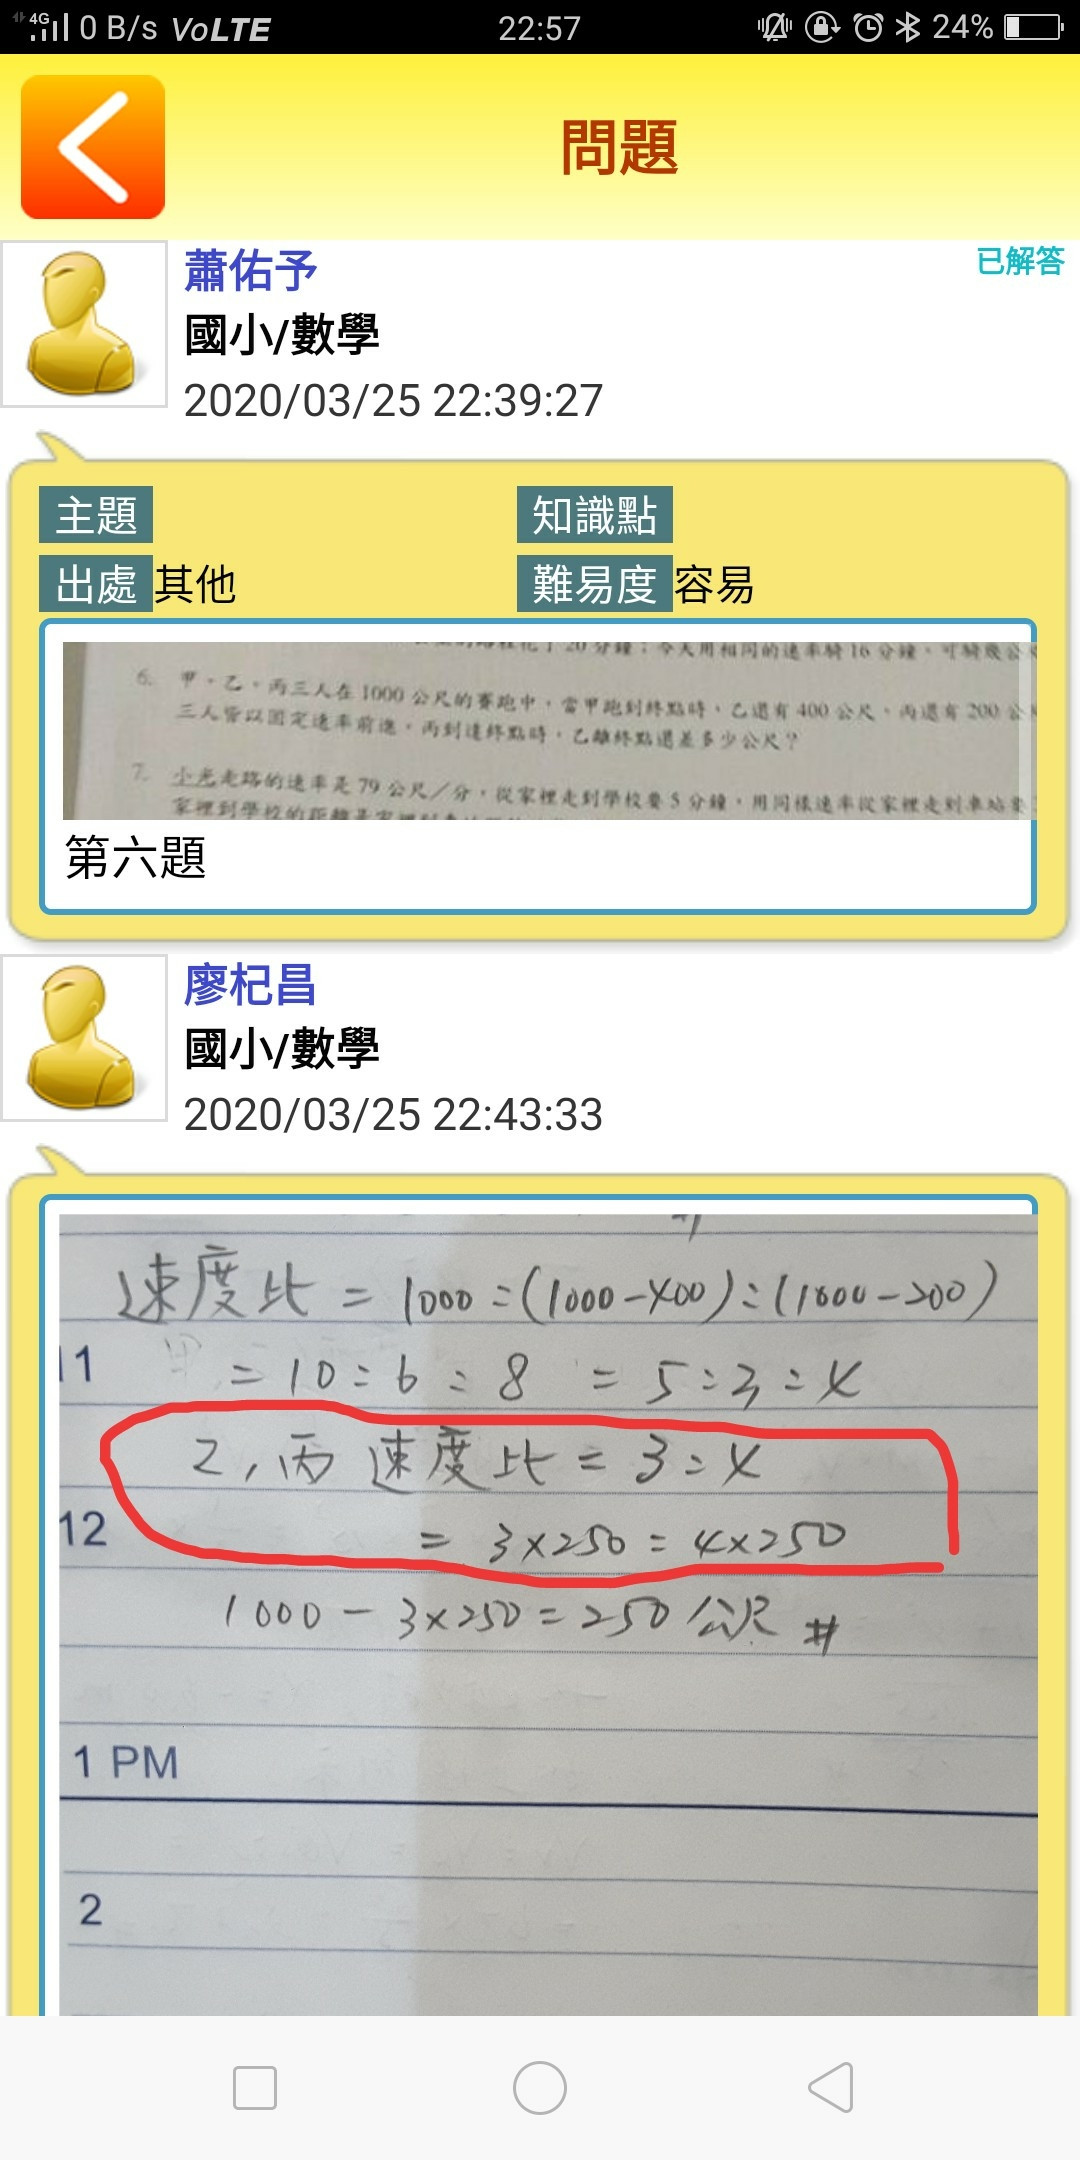 4G 0 B/s VoLTE 22:57 24%
問題
蕭佑予 已解答
國小/數學
2020/03/25 22:39:27
主題 知識點
出處 其他 難易度 容易
20 分鐘；今天用相同的速率騎 16 分鐘，可騎幾公
6. 甲、乙、丙三人在 1000 公尺的賽跑中，當甲跑到終點時，乙還有 400 公尺，丙還有 200 公
三人皆以固定速率前進，丙到達終點時，乙離終點還差多少公尺？
7. 小光走路的速率是 79 公尺／分，從家裡走到學校要 5 分鐘，用同樣速率從家裡走到車站要
家裡到學校的距離是家裡到車站
第六題
廖杞昌
國小/數學
2020/03/25 22:43:33
速度比 = 1000 : (1000-400) : (1000-200)
11 = 10 : 6 : 8 = 5 : 3 : 4
乙, 丙 速度比 = 3 : 4
12 = 3×250 : 4×250
1000 - 3×250 = 250 公尺 #
1 PM
2